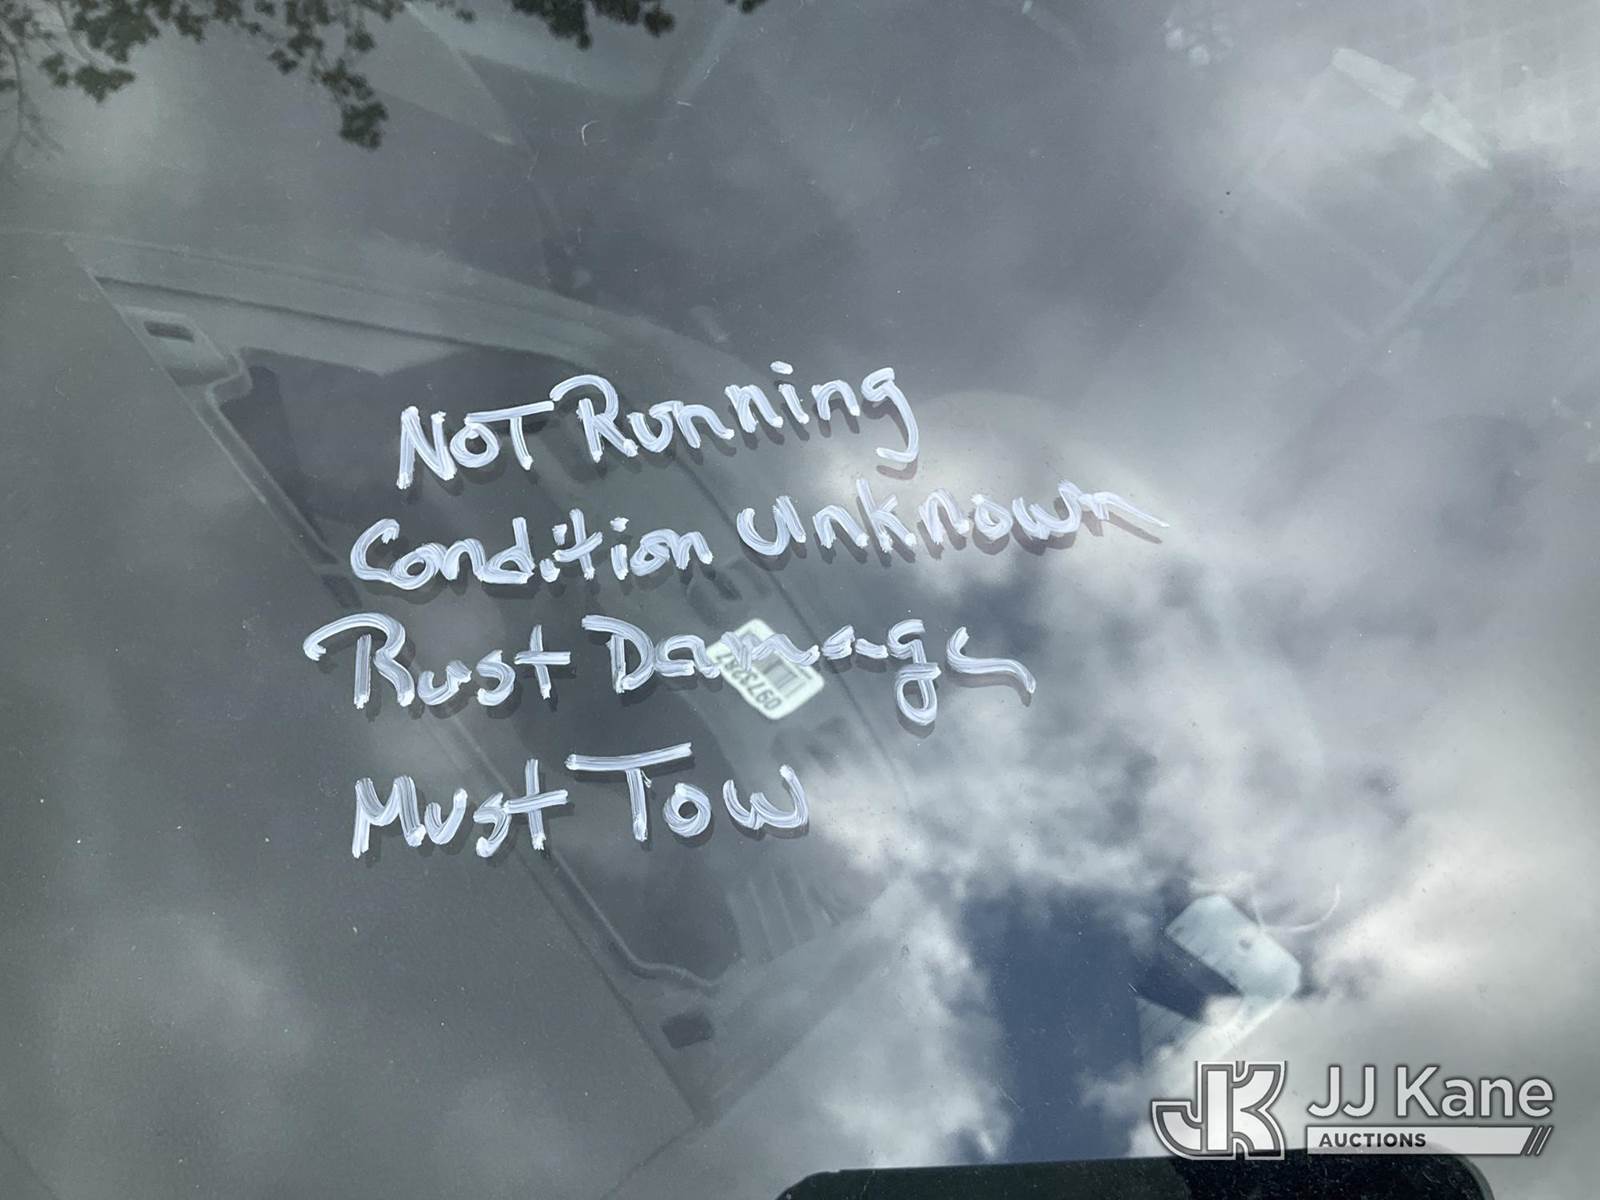 NOT Running
Condition Unknown
Rust Damage
Must Tow
JJ Kane
AUCTIONS